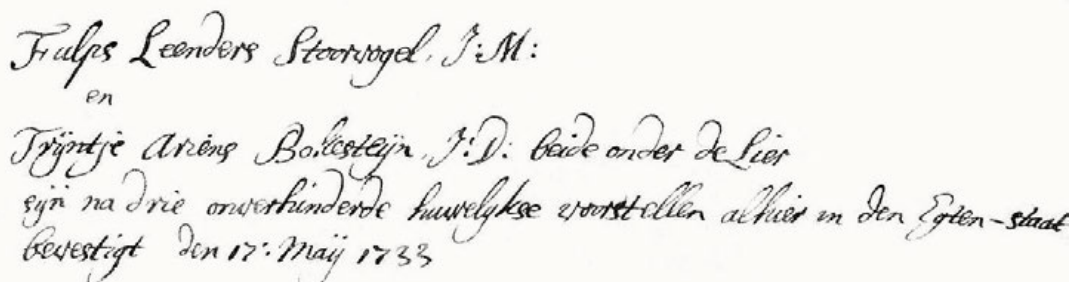 Fulps Leenders Stoorvogel, J:M:
en
Trijntje Ariens Bollesteijn, J:D: beide onder de Lier
zijn na drie onverhinderde huwelykse voorstellen alhier in den Egten-staat
bevestigt den 17: Maij 1733